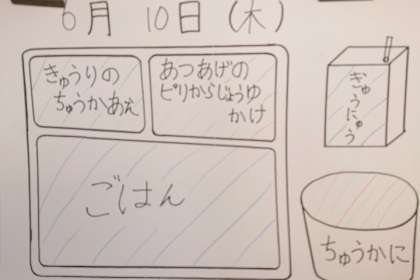 6月 10日 (木)
きゅうりの
ちゅうかあえ
あつあげの
ピリからじょうゆ
かけ
ぎゅうにゅう
ごはん
ちゅうかに